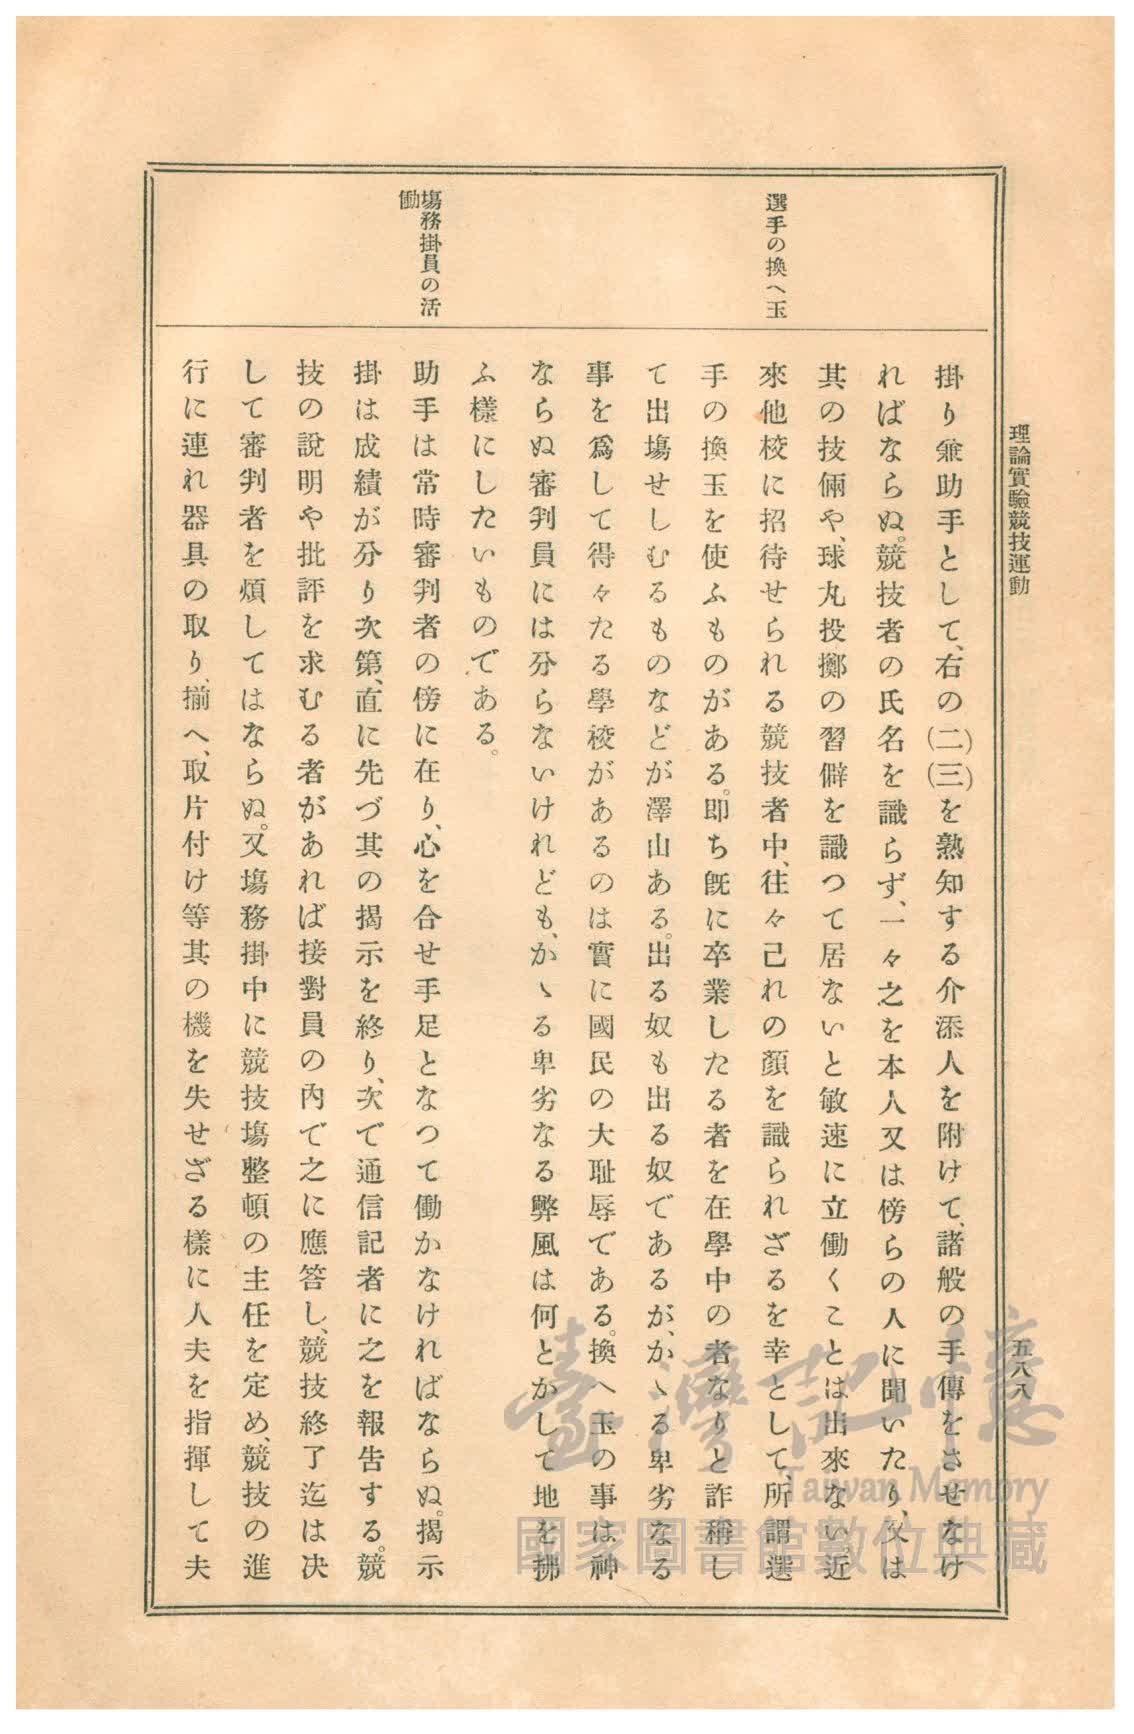 理論實驗競技運動
五八八
選手の換へ玉
塲務掛員の活
働
掛り兼助手として、右の(二)(三)を熟知する介添人を附けて、諸般の手傳をさせなけ
ればならぬ。競技者の氏名を識らず、一々之を本人又は傍らの人に聞いたり、又は
其の技倆や、球丸投擲の習僻を識つて居ないと敏速に立働くことは出來ない。近
來他校に招待せられる競技者中、往々己れの顏を識られざるを幸として所謂選
手の換玉を使ふものがある。卽ち旣に卒業したる者を在學中の者なりと詐稱し
て出塲せしむるものなどが澤山ある。出る奴も出る奴であるが、かゝる卑劣なる
事を爲して得々たる學校があるのは實に國民の大耻辱である。換へ玉の事は神
ならぬ審判員には分らないけれども、かゝる卑劣なる弊風は何とかして地を拂
ふ樣にしたいものである。
助手は常時審判者の傍に在り、心を合せ手足となつて働かなければならぬ。揭示
掛は成績が分り次第、直に先づ其の揭示を終り、次で通信記者に之を報告する。競
技の說明や批評を求むる者があれば接對員の內で之に應答し、競技終了迄は决
して審判者を煩してはならぬ。又塲務掛中に競技塲整頓の主任を定め、競技の進
行に連れ器具の取り、揃へ、取片付け等其の機を失せざる樣に人夫を指揮して夫
臺灣記憶
Taiwan Memory
國家圖書館數位典藏